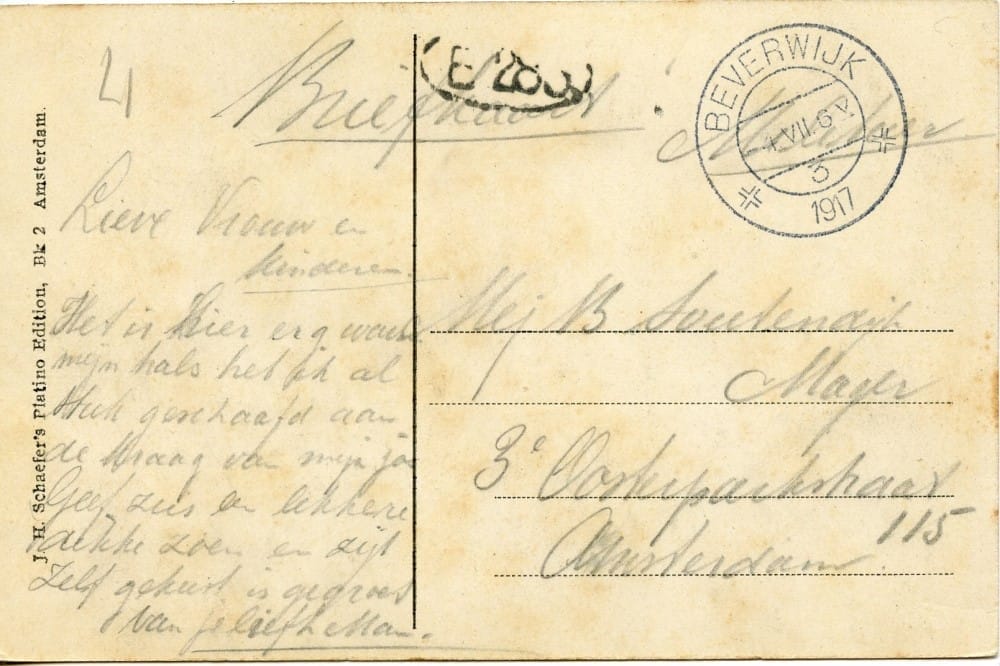 4
Briefkaart
E 283
BEVERWIJK
VII.6
5
1917
J. H. Schaefer's Platino Edition, Bk 2 Amsterdam.
Lieve Vrouw en
kinderen.
Het is hier erg warm
mijn hals heb ik al
stuk geschaafd aan
de kraag van mijn jas
Geef zus en lekkere
dikke zoen en zijt
zelf gekust is gegroet
van je liefh Man.
Mej B Soutendijk
Mayer
3e Oosterparkstraat
115
Amsterdam